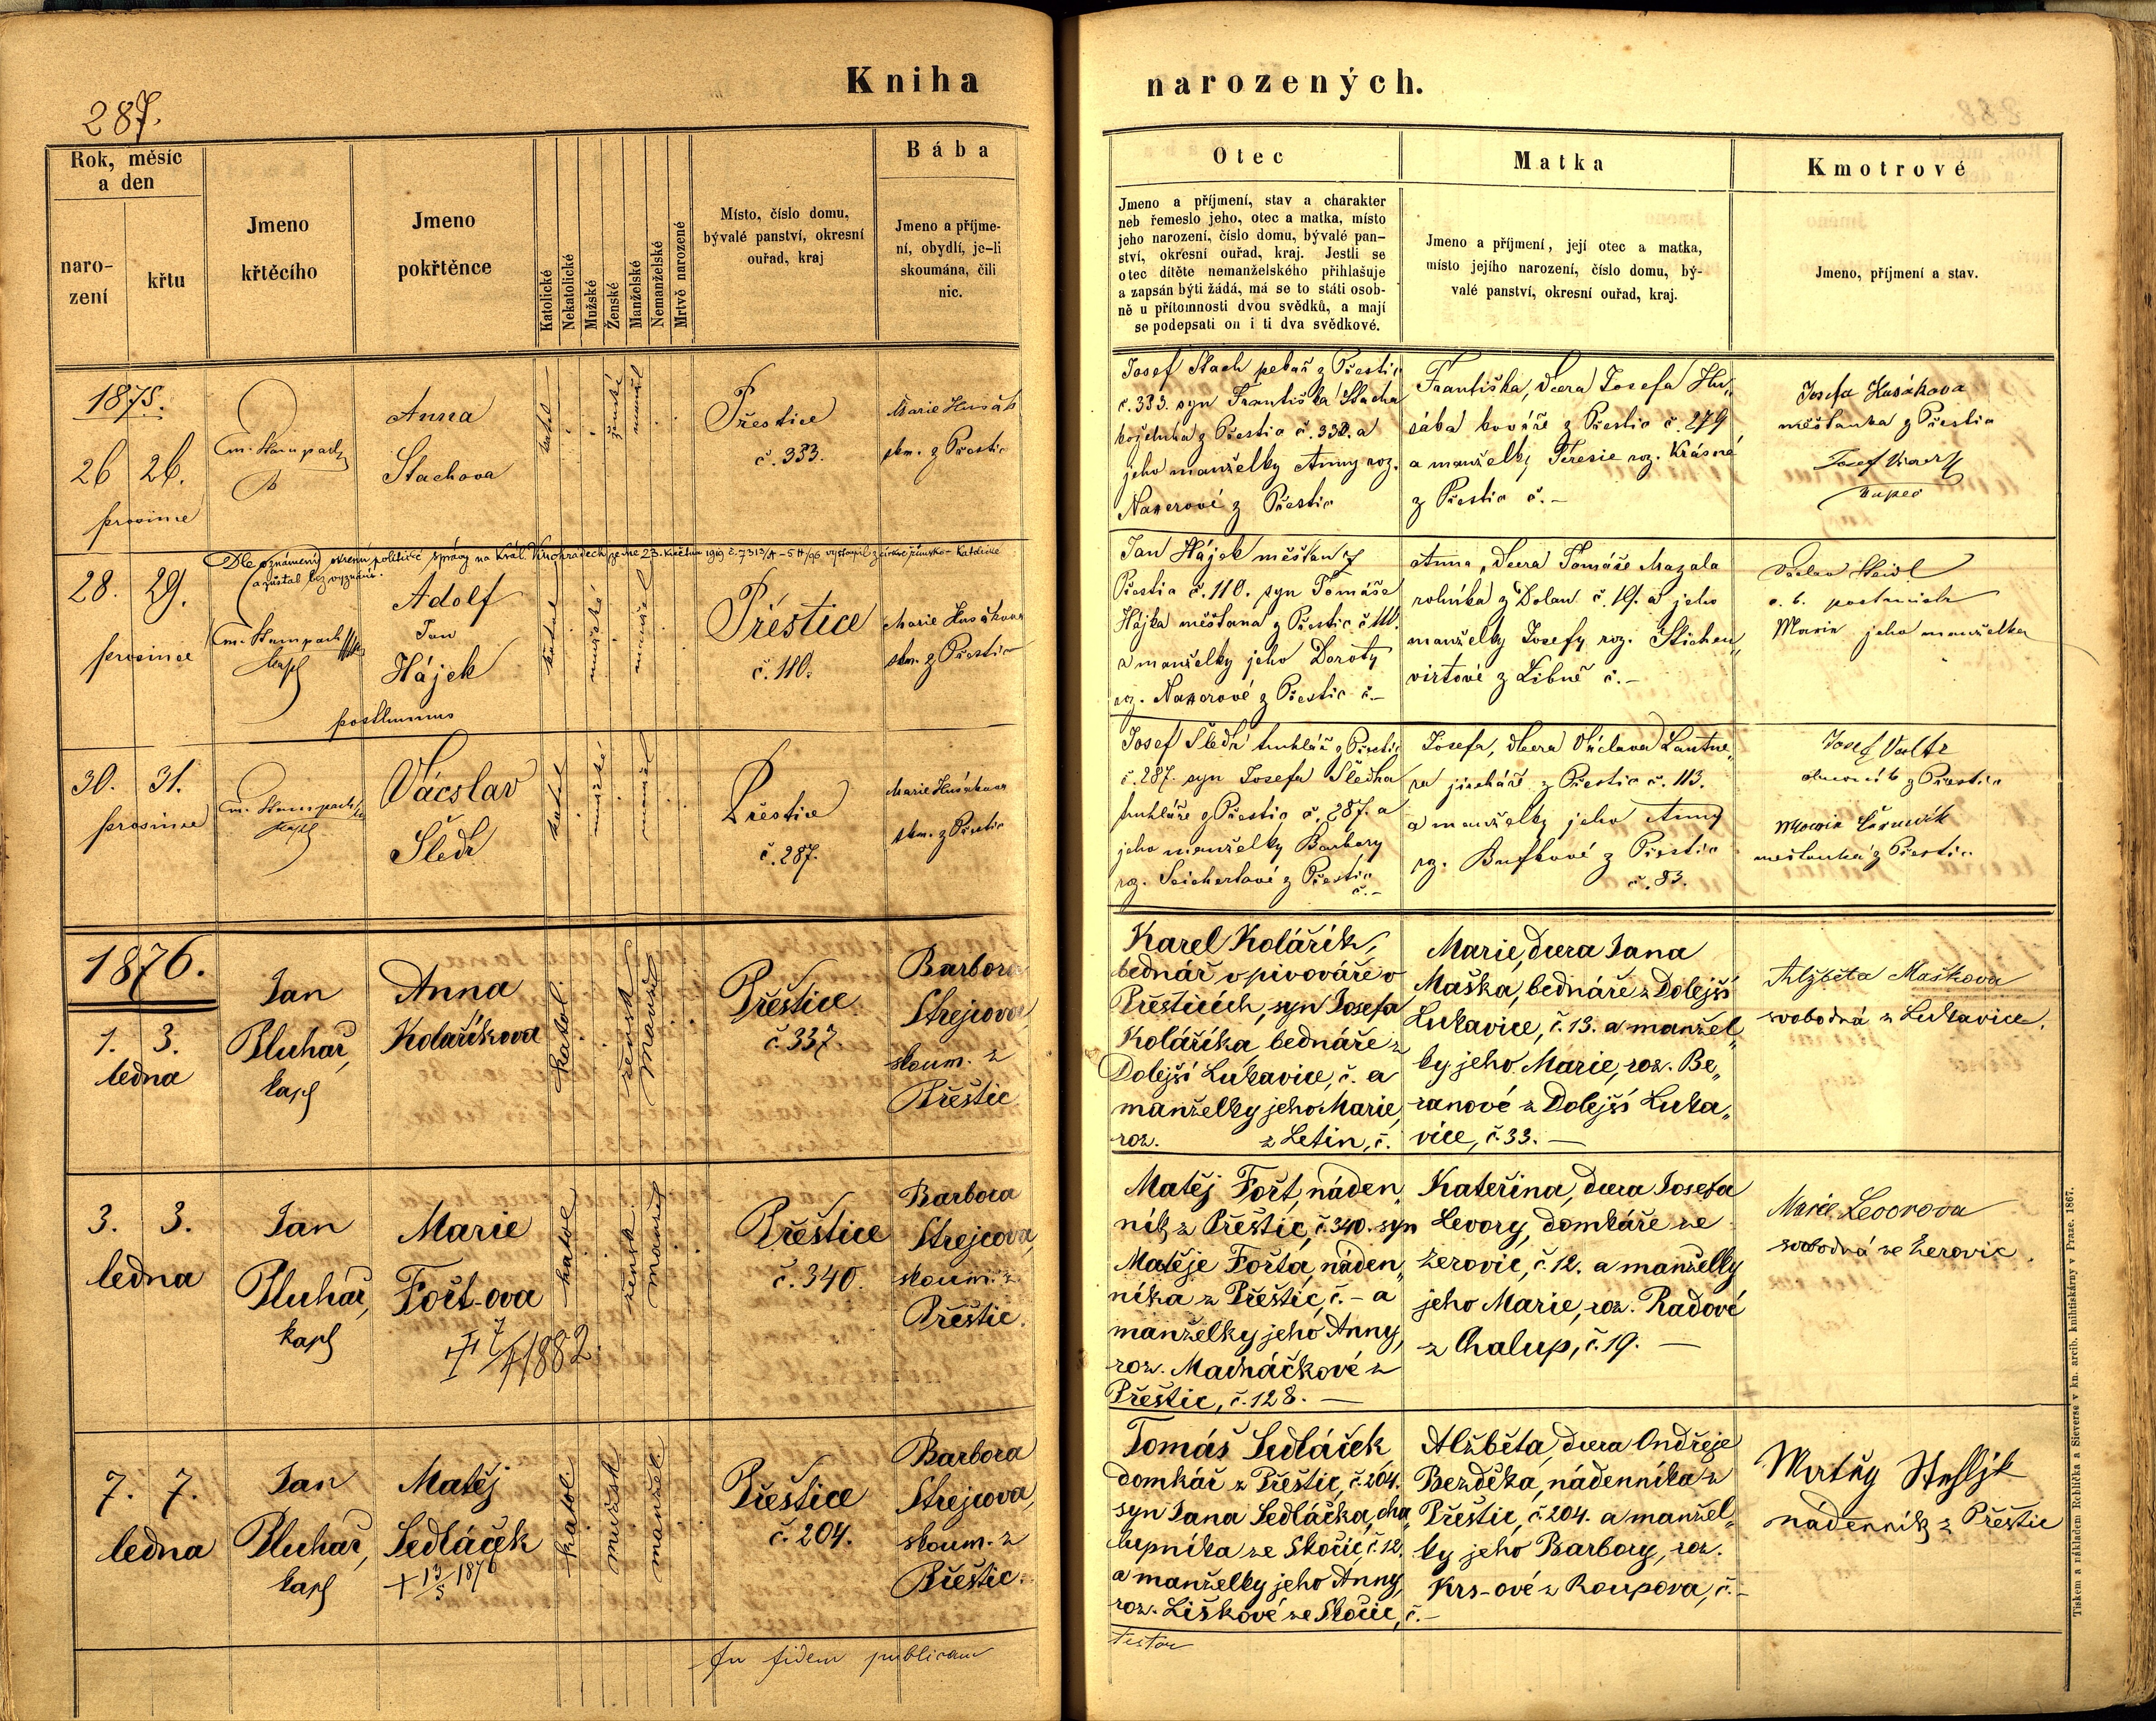 Kniha
narozených.
287.
Rok, měsíc
a den
naro-
zení
křtu
Jmeno
křtěcího
Jmeno
pokřtěnce
Katolické
Nekatolické
Mužské
Ženské
Manželské
Nemanželské
Mrtvě narozené
Místo, číslo domu,
bývalé panství, okresní
ouřad, kraj
Bába
Jmeno a příjme-
ní, obydlí, je-li
skoumána, čili
nic.
Otec
Jmeno a příjmení, stav a charakter
neb řemeslo jeho, otec a matka, místo
jeho narození, číslo domu, bývalé pan-
ství, okresní ouřad, kraj. Jestli se
otec dítěte nemanželského přihlašuje
a zapsán býti žádá, má se to státi osob-
ně u přítomnosti dvou svědků, a mají
se podepsati on i ti dva svědkové.
Matka
Jmeno a příjmení, její otec a matka,
místo jejího narození, číslo domu, bý-
valé panství, okresní ouřad, kraj.
Kmotrové
Jmeno, příjmení a stav.
1875.
26 26.
prosince
Anna
Stachova
katol
ženské
manžel
Přestice
č. 333.
Marie Husák
skm. z Přestic
Josef Stach pekař z Přestic
č. 333. syn Františka Stacha
koželuha z Přestic č. 332. a
jeho manželky Anny roz.
z Přestic
Františka, dcera Josefa Hu„
sáka kováře z Přestic č. 279
a manželky Teresie roz. Krásné
z Přestic č. –
Josefa Husákova
měšťanka z Přestic
Josef
kupec
Dle oznámení okresní politické správy na Král. Vinohradech ze dne 23. května 1919 č. 7313/A-5H/96 vystoupil z církve římsko-katolické
a zůstal bez vyznání.
28. 29.
prosince
kapl
Adolf
Jan
Hájek
posthumus
katol
mužské
manžel
Přestice
č. 110.
Marie Husákova
skm. z Přestic
Jan Hájek měšťan z
Přestic č. 110. syn Tomáše
Hájka měšťana z Přestic č. 111.
a manželky jeho Doroty
roz. z Přestic č. –
Anna, dcera Tomáše Mazala
rolníka z Dolan č. 19. a jeho
manželky Josefy roz. Stichen„
virtové z Libně č. –
Václav Steidl
c. k. postmistr
Marie jeho manželka
30. 31.
prosince
kapl
Vácslav
Šledr
katol
mužské
manžel
Přestice
č. 287.
Marie Husákova
skm. z Přestic
Josef Šledr truhlář z Přestic
č. 287. syn Josefa Šledra
truhláře z Přestic č. 287. a
jeho manželky Barbory
roz. Seichertové z Přestic
č. –
Josefa, dcera Václava Lautne„
ra jircháře z Přestic č. 113.
a manželky jeho Anny
roz. z Přestic
č. 83.
Josef Valtr
z Přestic
Marie
měšťanka z Přestic
1876.
1. 3.
ledna
Jan
Pluhař,
kapl
Anna
Kolaříkova
katol.
žensk.
manžel
Přeštice
č. 337
Barbora
Strejcova,
skoum. z
Přeštic
Karel Kolářík,
bednář v pivováře v
Přešticích, syn Josefa
Kolaříka bednáře z
Dolejší Lukavice, č. a
manželky jeho Marie,
roz. z Letin, č.
Marie, dcera Jana
Maška, bednáře z Dolejší
Lukavice, č. 13. a manžel„
ky jeho Marie, roz. Be„
ranové z Dolejší Luka„
vice, č. 33. –
Alžběta Maškova
svobodná z Lukavice.
3. 3.
ledna
Jan
Pluhař,
kapl
Marie
Fořt-ova
1882.
katol
žensk.
manžel
Přeštice
č. 340.
Barbora
Strejcova,
skoum. z
Přeštic.
Matěj Fořt, náden„
ník z Přeštic, č. 340. syn
Matěje Fořta, náden„
níka z Přeštic, č. – a
manželky jeho Anny,
roz. Macháčkové z
Přeštic, č. 128. –
Kateřina, dcera Josefa
Levory, domkáře ze
Zerovic, č. 12. a manželky
jeho Marie, roz. Radové
z Chalup, č. 19. –
Marie Levorova
svobodná ze Zerovic.
7. 7.
ledna
Jan
Pluhař,
kapl
Matěj
Sedláček
+ 13/5 1876
katol.
mužsk
manžel
Přeštice
č. 204.
Barbora
Strejcova,
skoum. z
Přeštic.
Tomáš Sedláček
domkář z Přeštic, č. 204.
syn Jana Sedláčka, cha„
lupníka ze Skočic, č. 12.
a manželky jeho Anny,
roz. Liškové ze Skočic, č. –
Alžběta, dcera Ondřeje
Bezděka, nádenníka z
Přeštic, č. 204. a manžel„
ky jeho Barbory, roz.
Krs-ové z Roupova, č. –
Matěj
nádenník z Přeštic
In fidem publicam
testor
Tiskem a nákladem Rohlíčka a Sieverse v kn. arcib. knihtiskárny v Praze. 1867.